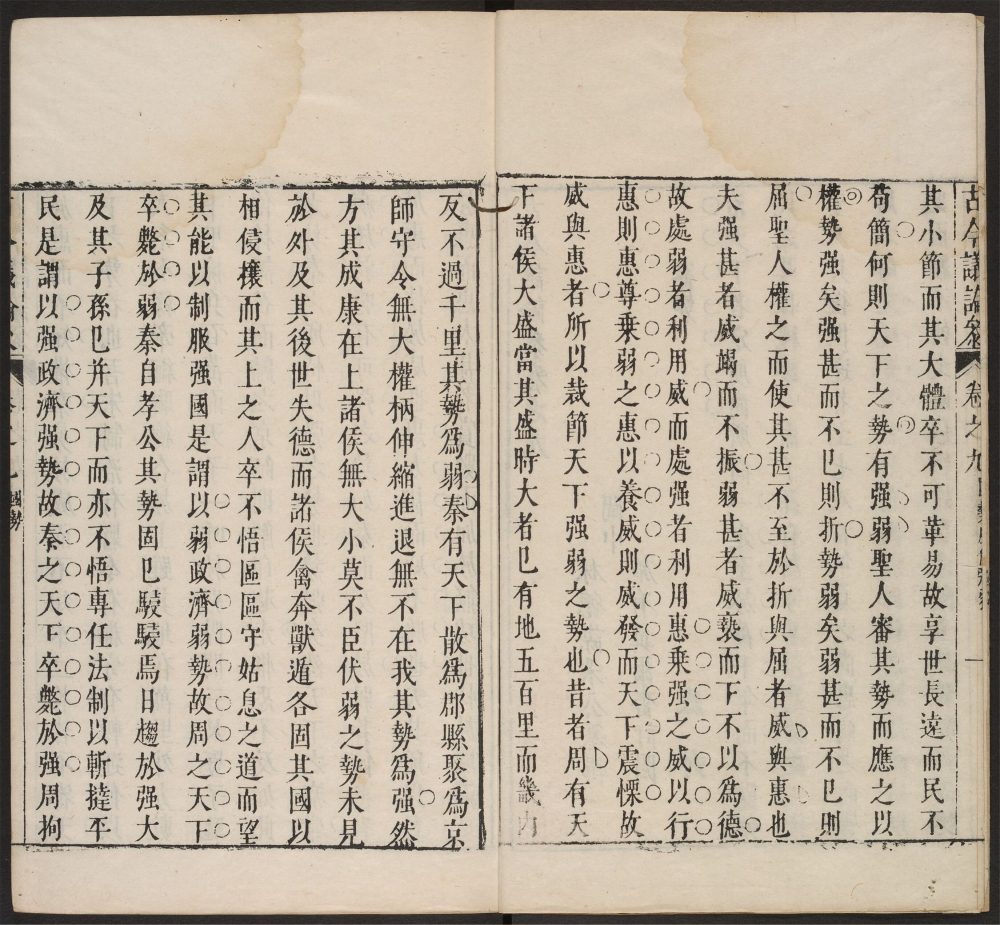 古今議論參 卷之九 一
其小節而其大體卒不可革易故享世長遠而民不
苟簡何則天下之勢有强弱聖人審其勢而應之以
權勢强矣强甚而不已則折勢弱矣弱甚而不已則
屈聖人權之而使其甚不至於折與屈者威與惠也
夫强甚者威竭而不振弱甚者威䙝而下不以爲德
故處弱者利用威而處强者利用惠乘强之威以行
惠則惠尊乘弱之惠以養威則威發而天下震慄故
威與惠者所以裁節天下强弱之勢也昔者周有天
下諸侯大盛當其盛時大者已有地五百里而畿内
反不過千里其勢爲弱秦有天下散爲郡縣聚爲京
師守令無大權柄伸縮進退無不在我其勢爲强然
方其成康在上諸侯無大小莫不臣伏弱之勢未見
於外及其後世失德而諸侯禽奔獸遁各固其國以
相侵攘而其上之人卒不悟區區守姑息之道而望
其能以制服强國是謂以弱政濟弱勢故周之天下
卒斃於弱秦自孝公其勢固已駸駸焉日趨於强大
及其子孫已并天下而亦不悟專任法制以斬撻平
民是謂以强政濟强勢故秦之天下卒斃於强周拘
國勢